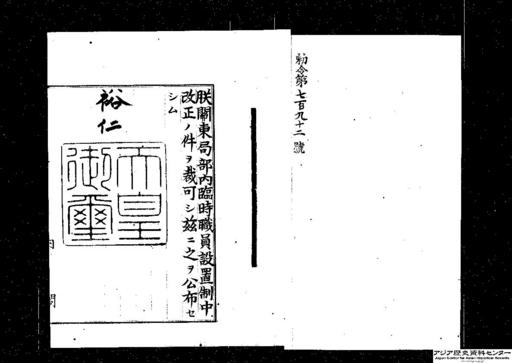 勅令第七百九十二號
朕關東局部内臨時職員設置制中
改正ノ件ヲ裁可シ茲ニ之ヲ公布セ
シム
裕仁
天皇
御璽
内閣
アジア歴史資料センター
Japan Center for Asian Historical Records